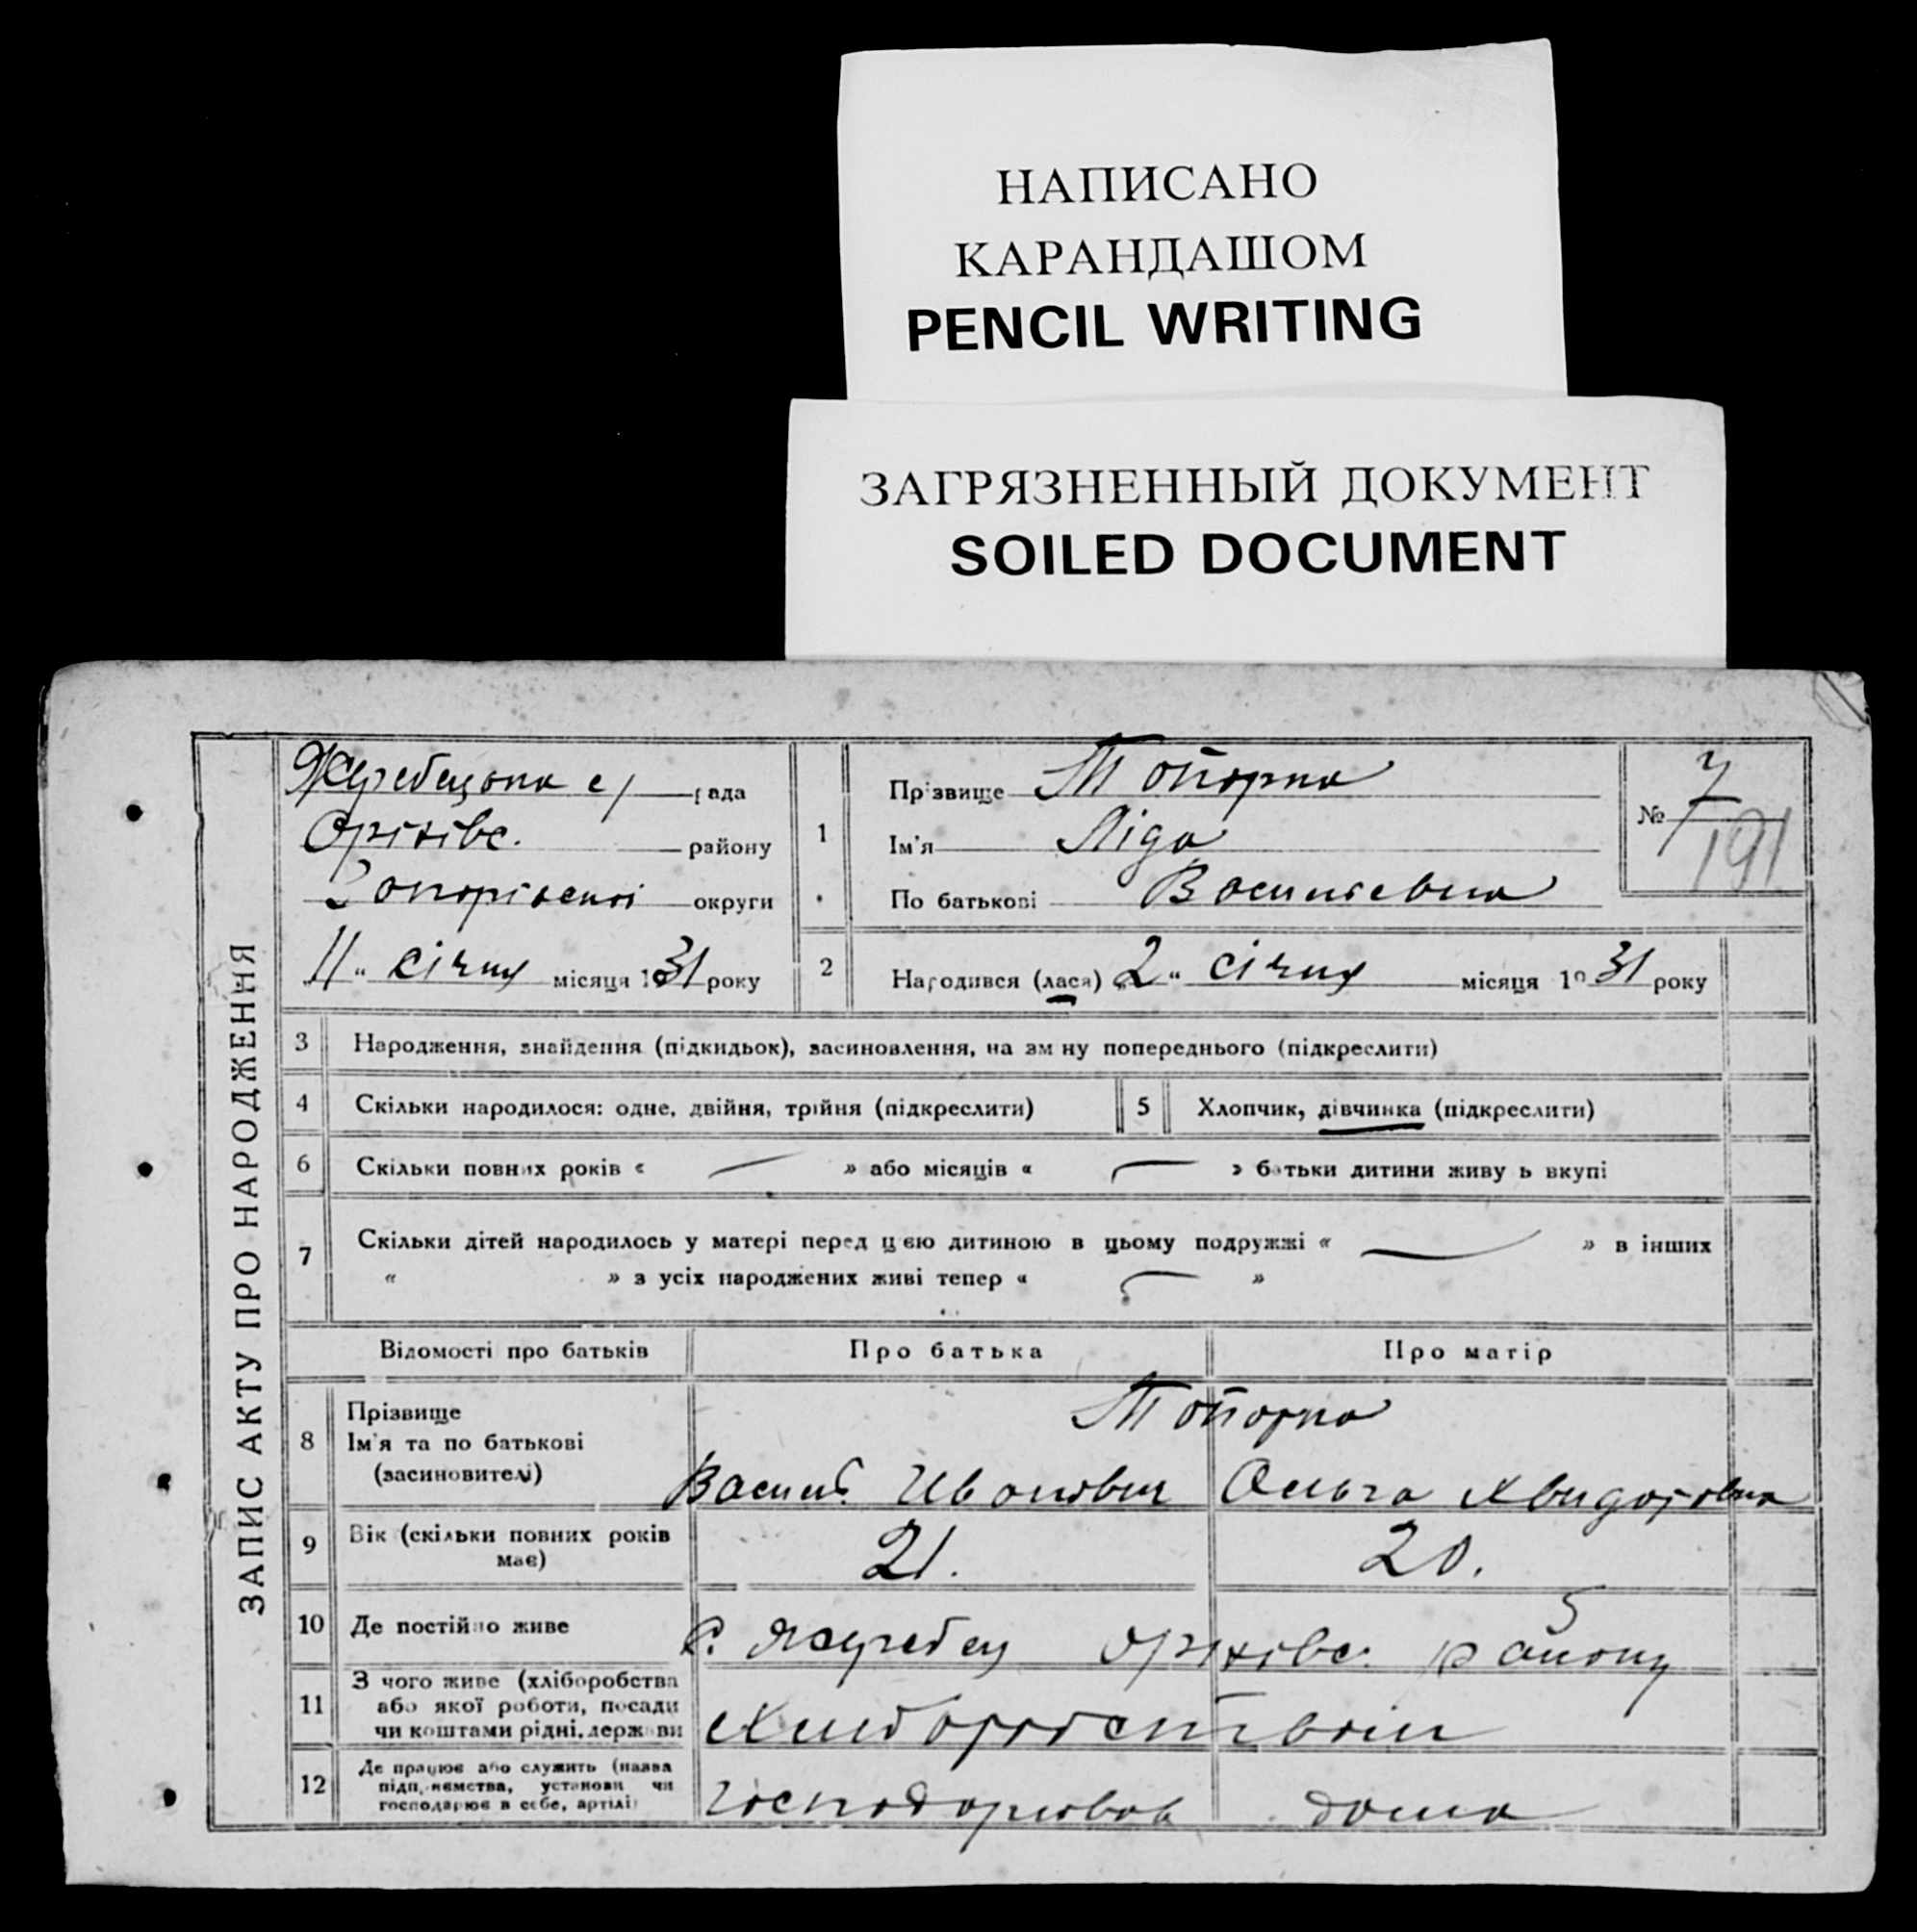 НАПИСАНО
КАРАНДАШОМ
PENCIL WRITING
ЗАГРЯЗНЕННЫЙ ДОКУМЕНТ
SOILED DOCUMENT
ЗАПИС АКТУ ПРО НАРОДЖЕННЯ
Жеребецька с/ рада
Оріхівс. району
Запорізької округи
11 „ січня місяця 1931 року
1 Прізвище Топорка
Ім'я Ліда
По батькові Васильевна
№ 7
191
2 Народився (лася) „2 “ січня місяця 19 31 року
3 Народження, знайдення (підкидьок), засиновлення, на зміну попереднього (підкреслити)
4 Скільки народилося: одне, двійня, трійня (підкреслити)
5 Хлопчик, дівчинка (підкреслити)
6 Скільки повних років « — » або місяців « — » батьки дитини живуть вкупі
7 Скільки дітей народилось у матері перед цією дитиною в цьому подружжі « — » в інших
« » з усіх народжених живі тепер « — »
Відомості про батьків Про батька Про матір
8 Прізвище
Ім'я та по батькові
(засиновителі)
Топорка
Василь Иванович Ольга
9 Вік (скільки повних років має) 21. 20.
10 Де постійно живе с. Жеребец Оріхівс. району
11 З чого живе (хліборобства
або якої роботи, посади
чи коштами рідні, держави
12 Де працює або служить (назва
підприємства, установи чи
господарює в себе, артілі)
дома